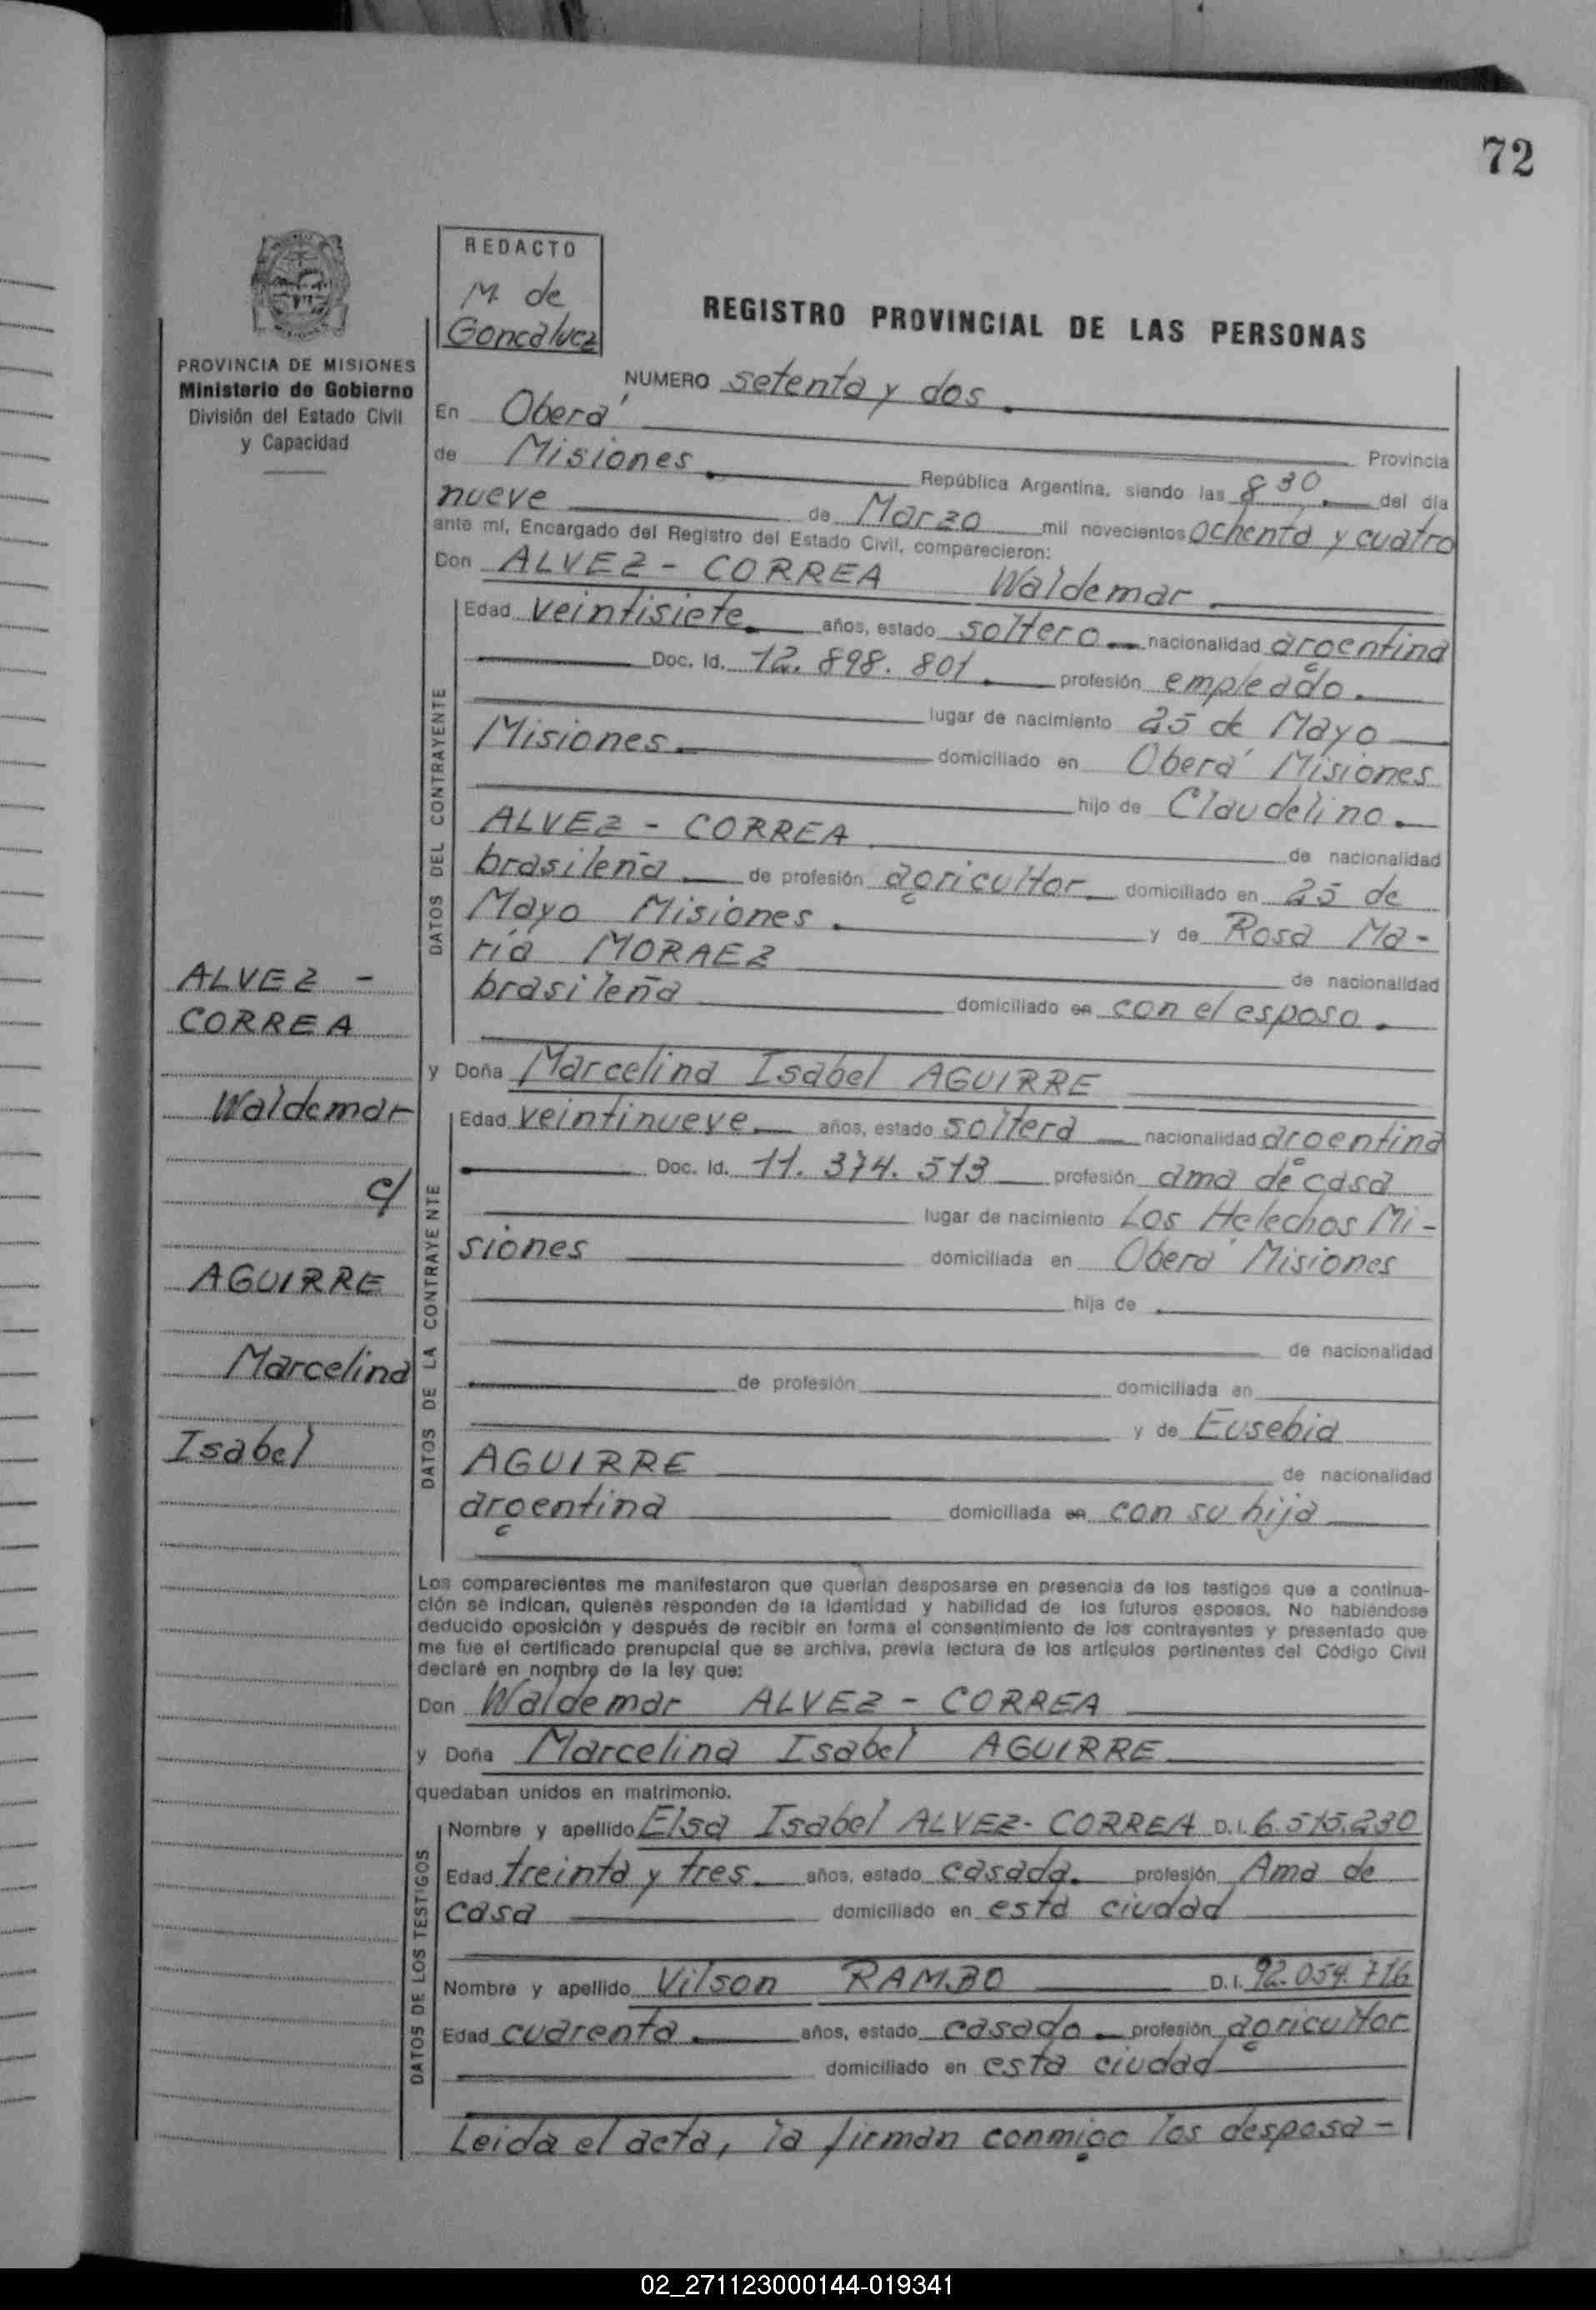 72
REDACTO
M. de
Goncalvez
REGISTRO PROVINCIAL DE LAS PERSONAS
PROVINCIA DE MISIONES
Ministerio de Gobierno
División del Estado Civil
y Capacidad
NUMERO setenta y dos.
En Oberá Provincia
de Misiones. República Argentina, siendo las 8,30. del día
nueve de Marzo mil novecientos ochenta y cuatro
ante mí, Encargado del Registro del Estado Civil, comparecieron:
Don ALVEZ - CORREA Waldemar
DATOS DEL CONTRAYENTE
Edad veintisiete. años, estado soltero. nacionalidad argentina
Doc. Id. 12.898.801. profesión empleado.
lugar de nacimiento 25 de Mayo
Misiones. domiciliado en Oberá Misiones
hijo de Claudelino.
ALVEZ - CORREA. de nacionalidad
brasileña. de profesión agricultor domiciliado en 25 de
Mayo Misiones. y de Rosa Ma-
ría MORAEZ de nacionalidad
brasileña domiciliado en con el esposo.
y Doña Marcelina Isabel AGUIRRE
DATOS DE LA CONTRAYENTE
Edad veintinueve. años, estado soltera nacionalidad argentina
Doc. Id. 11.374.513 profesión ama de casa
lugar de nacimiento Los Helechos Mi-
siones domiciliada en Oberá Misiones
hija de
de nacionalidad
de profesión domiciliada en
y de Eusebia
AGUIRRE de nacionalidad
argentina domiciliada en con su hija
ALVEZ -
CORREA
Waldemar
c/
AGUIRRE
Marcelina
Isabel
Los comparecientes me manifestaron que querían desposarse en presencia de los testigos que a continua-
ción se indican, quienes responden de la identidad y habilidad de los futuros esposos. No habiéndose
deducido oposición y después de recibir en forma el consentimiento de los contrayentes y presentado que
me fue el certificado prenupcial que se archiva, previa lectura de los artículos pertinentes del Código Civil
declaré en nombre de la ley que:
Don Waldemar ALVEZ - CORREA
y Doña Marcelina Isabel AGUIRRE
quedaban unidos en matrimonio.
DATOS DE LOS TESTIGOS
Nombre y apellido Elsa Isabel ALVEZ - CORREA D.I. 6.515.230
Edad treinta y tres. años, estado casada. profesión Ama de
casa domiciliado en esta ciudad
Nombre y apellido Vilson RAMBO D.I. 92.054.716
Edad cuarenta. años, estado casado. profesión agricultor
domiciliado en esta ciudad
Leida el acta, la firman conmigo los desposa-
02_271123000144-019341